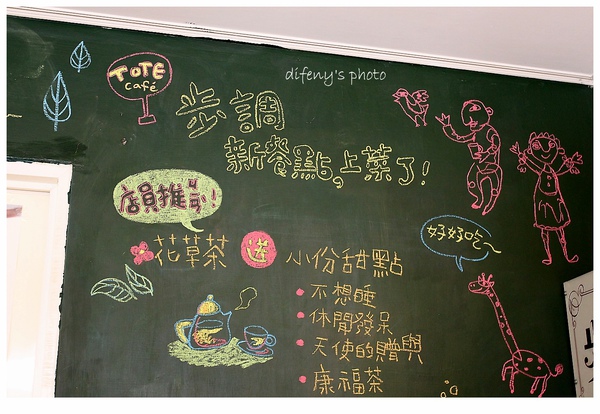 difeny's photo
TOTE
café
步調
新餐點。上菜了!
店員推薦!
好好吃~
花草茶 送 小份甜點
不想睡
休閒發呆
天使的贈與
康福茶